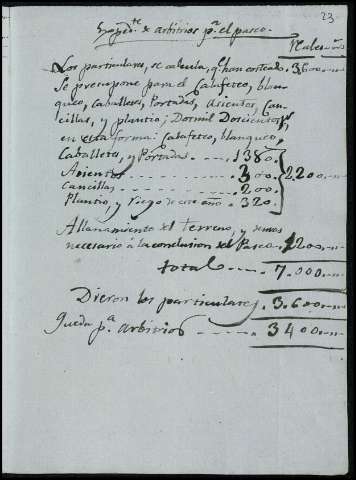 23
Exped.te de arbitrios p.a el paseo.
Reales v.n
Los particulares, se calcula, q.e han costeado. 3600.-- "
Se presupone para el Calafeteo, blan-
queo, Caballetes, Portadas, Asientos, Can-
cillas, y plantio; Dosmil Doscientos r.s
en esta forma: Calafeteo, blanqueo,
Caballetes, y Portadas. ---- 1380.
Asientos ---- 300. 2,200.-- "
Cancillas ---- 200.
Plantio, y riego de este año. 320.
Allanamiento del terreno, y demas
necesario á la conclusion del Paseo. 1200.-- "
total ---- 7.000.-- "
Dieron los particulares. 3.600.-- "
Queda p.a arbitrios ---- 3400.-- "